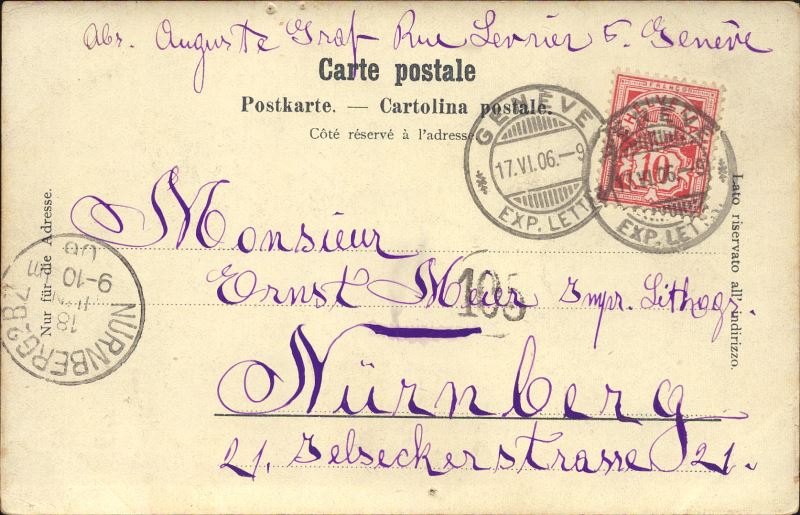 Abs. Auguste Graf Rue Levrier 5. Genève
Carte postale
Postkarte. — Cartolina postale.
Côté réservé à l'adresse
GENÈVE
17.VI.06.–9
EXP. LETT
FRANCO
HELVETIA
10
GENÈVE
17.VI.06.–9
EXP. LETT.
Nur für die Adresse.
Lato riservato all' indirizzo.
Monsieur
Ernst Meier Impr. Lithogr.
105
Nürnberg
21, Selseckerstrasse 21.
NÜRNBERG
18
9-10